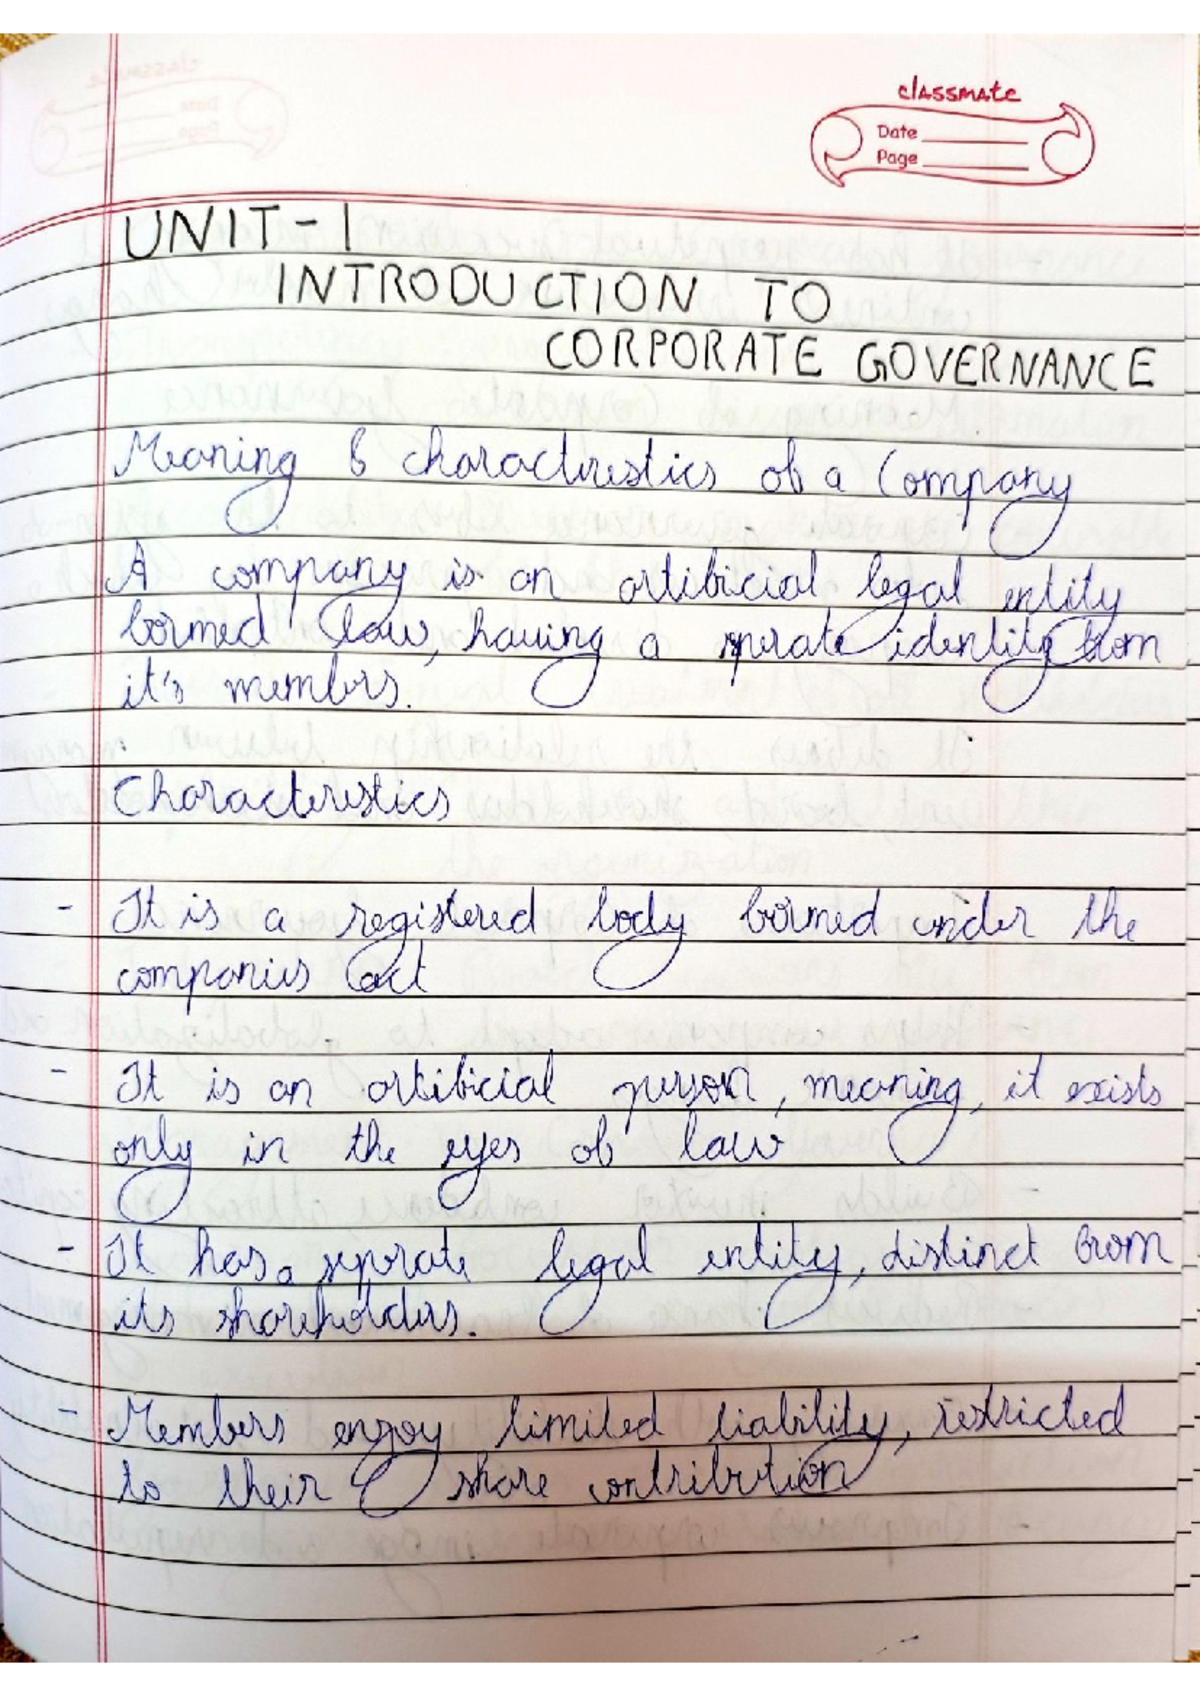 classmate
Date
Page
UNIT-1
INTRODUCTION TO
CORPORATE GOVERNANCE
Meaning & characteristics of a Company
A company is an artificial legal entity
formed law, having a seperate identity from
it's members.
Characteristics
- It is a registered body formed under the
companies act
- It is an artificial person, meaning, it exists
only in the eyes of law
- It has a seprate legal entity, distinct from
its shareholders.
- Members enjoy limited liability, restricted
to their share contribution